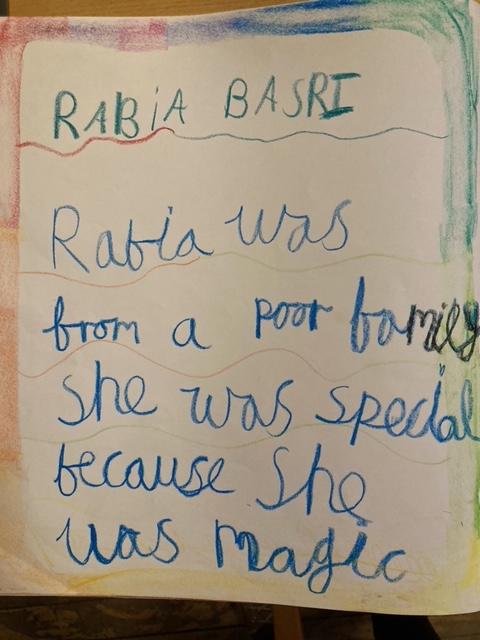 RABiA BASRI
Rabia was
from a poor family
She was special
because She
was magic